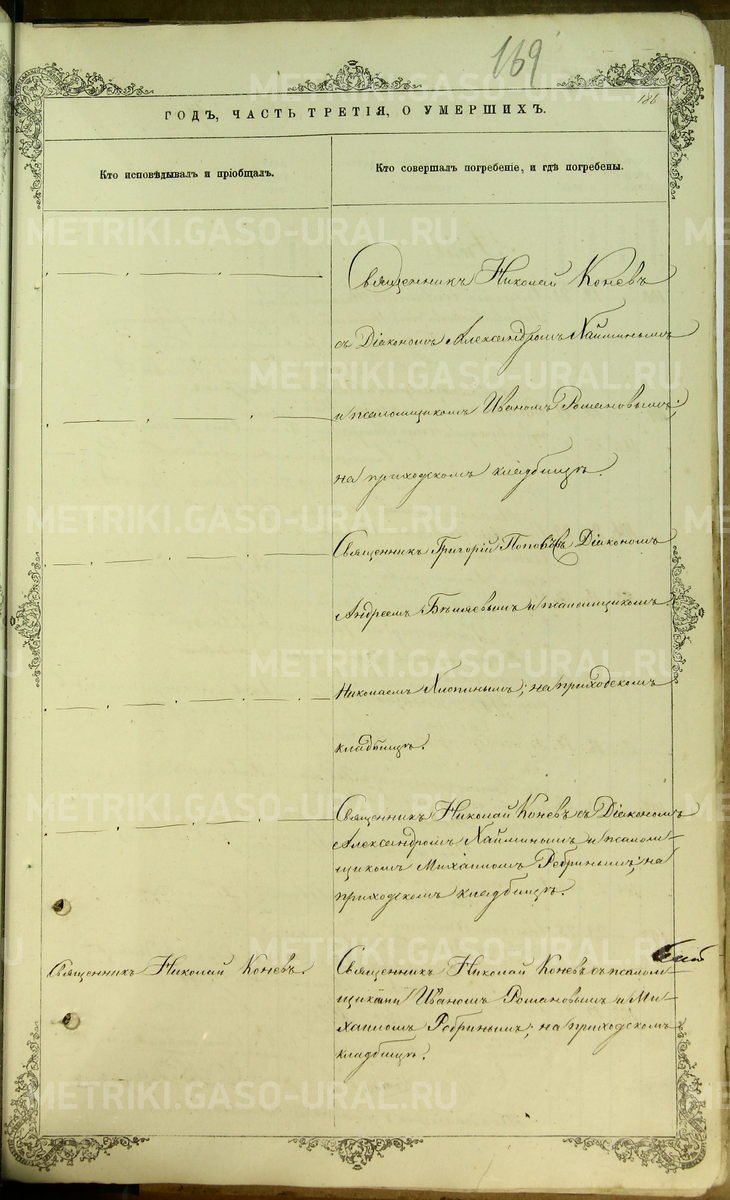 169
186
ГОДЪ, ЧАСТЬ ТРЕТІЯ, О УМЕРШИХЪ.
Кто исповѣдывалъ и пріобщалъ.
Кто совершалъ погребеніе, и гдѣ погребены.
Священникъ Николай Коневъ
съ Діакономъ Александромъ Хайминымъ
и псаломщикомъ Иваномъ Романовымъ;
на приходскомъ кладбищѣ.
Священникъ Григорій Поповъ съ Діакономъ
Андреемъ и псаломщикомъ
Николаемъ Хлопинымъ; на приходскомъ
кладбищѣ.
Священникъ Николай Коневъ съ Діакономъ
Александромъ Хайминымъ и псалом-
щикомъ Михаиломъ Ребринымъ; на
приходскомъ кладбищѣ.
Священникъ Николай Коневъ.
Священникъ Николай Коневъ съ псалом
щиками Иваномъ Романовымъ и Ми-
хаиломъ Ребринымъ; на приходскомъ
кладбищѣ.
METRIKI.GASO-URAL.RU